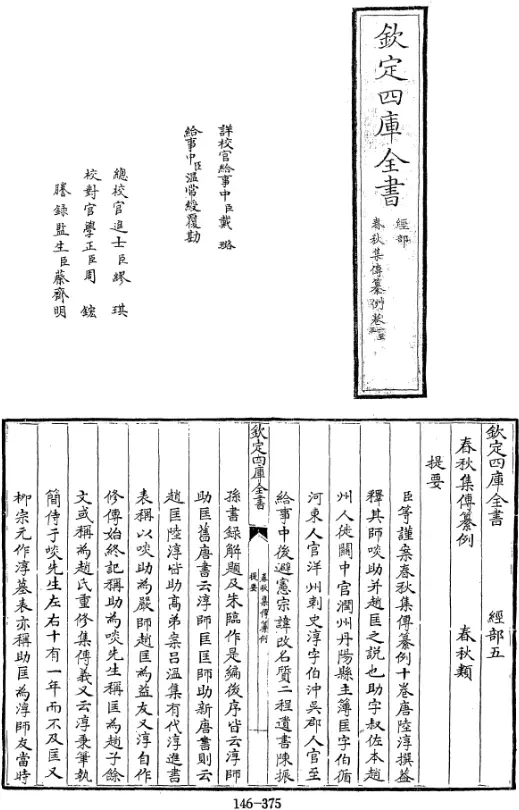 欽定四庫全書
經部
春秋集傳纂例卷
詳校官給事中臣戴璐
給事中臣溫常綬覆勘
總校官進士臣繆琪
校對官學正臣周鋐
謄錄監生臣蔡齊明
欽定四庫全書 經部五
春秋集傳纂例 春秋類
提要
臣等謹案春秋集傳纂例十卷唐陸淳撰葢
釋其師啖助并趙匡之説也助字叔佐本趙
州人徙關中官潤州丹陽縣主簿匡字伯循
河東人官洋州刺史淳字伯沖吳郡人官至
給事中後避憲宗諱改名質二程遺書陳振
欽定四庫全書
春秋集傳纂例
提要
孫書録解題及朱臨作是編後序皆云淳師
助匡舊唐書云淳師匡匡師助新唐書則云
趙匡陸淳皆助高弟案呂溫集有代淳進書
表稱以啖助為嚴師趙匡為益友又淳自作
修傳始終記稱助為啖先生稱匡為趙子餘
文或稱為趙氏重修集傳義又云淳秉筆執
簡侍于啖先生左右十有一年而不及匡又
柳宗元作淳墓表亦稱助匡為淳師友當時
146-375